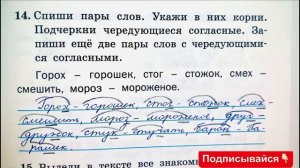 14. Спиши пары слов. Укажи в них корни.
Подчеркни чередующиеся согласные. За-
пиши ещё две пары слов с чередующими-
ся согласными.
Горох – горошек, стог – стожок, смех –
смешить, мороз – мороженое.
Горох - горошек, стог - стожок, смех -
смешить, мороз - мороженое, друг -
дружок, стук - стучать, баран - ба-
рашек.
15. Выдели в тексте все
Подписывайся